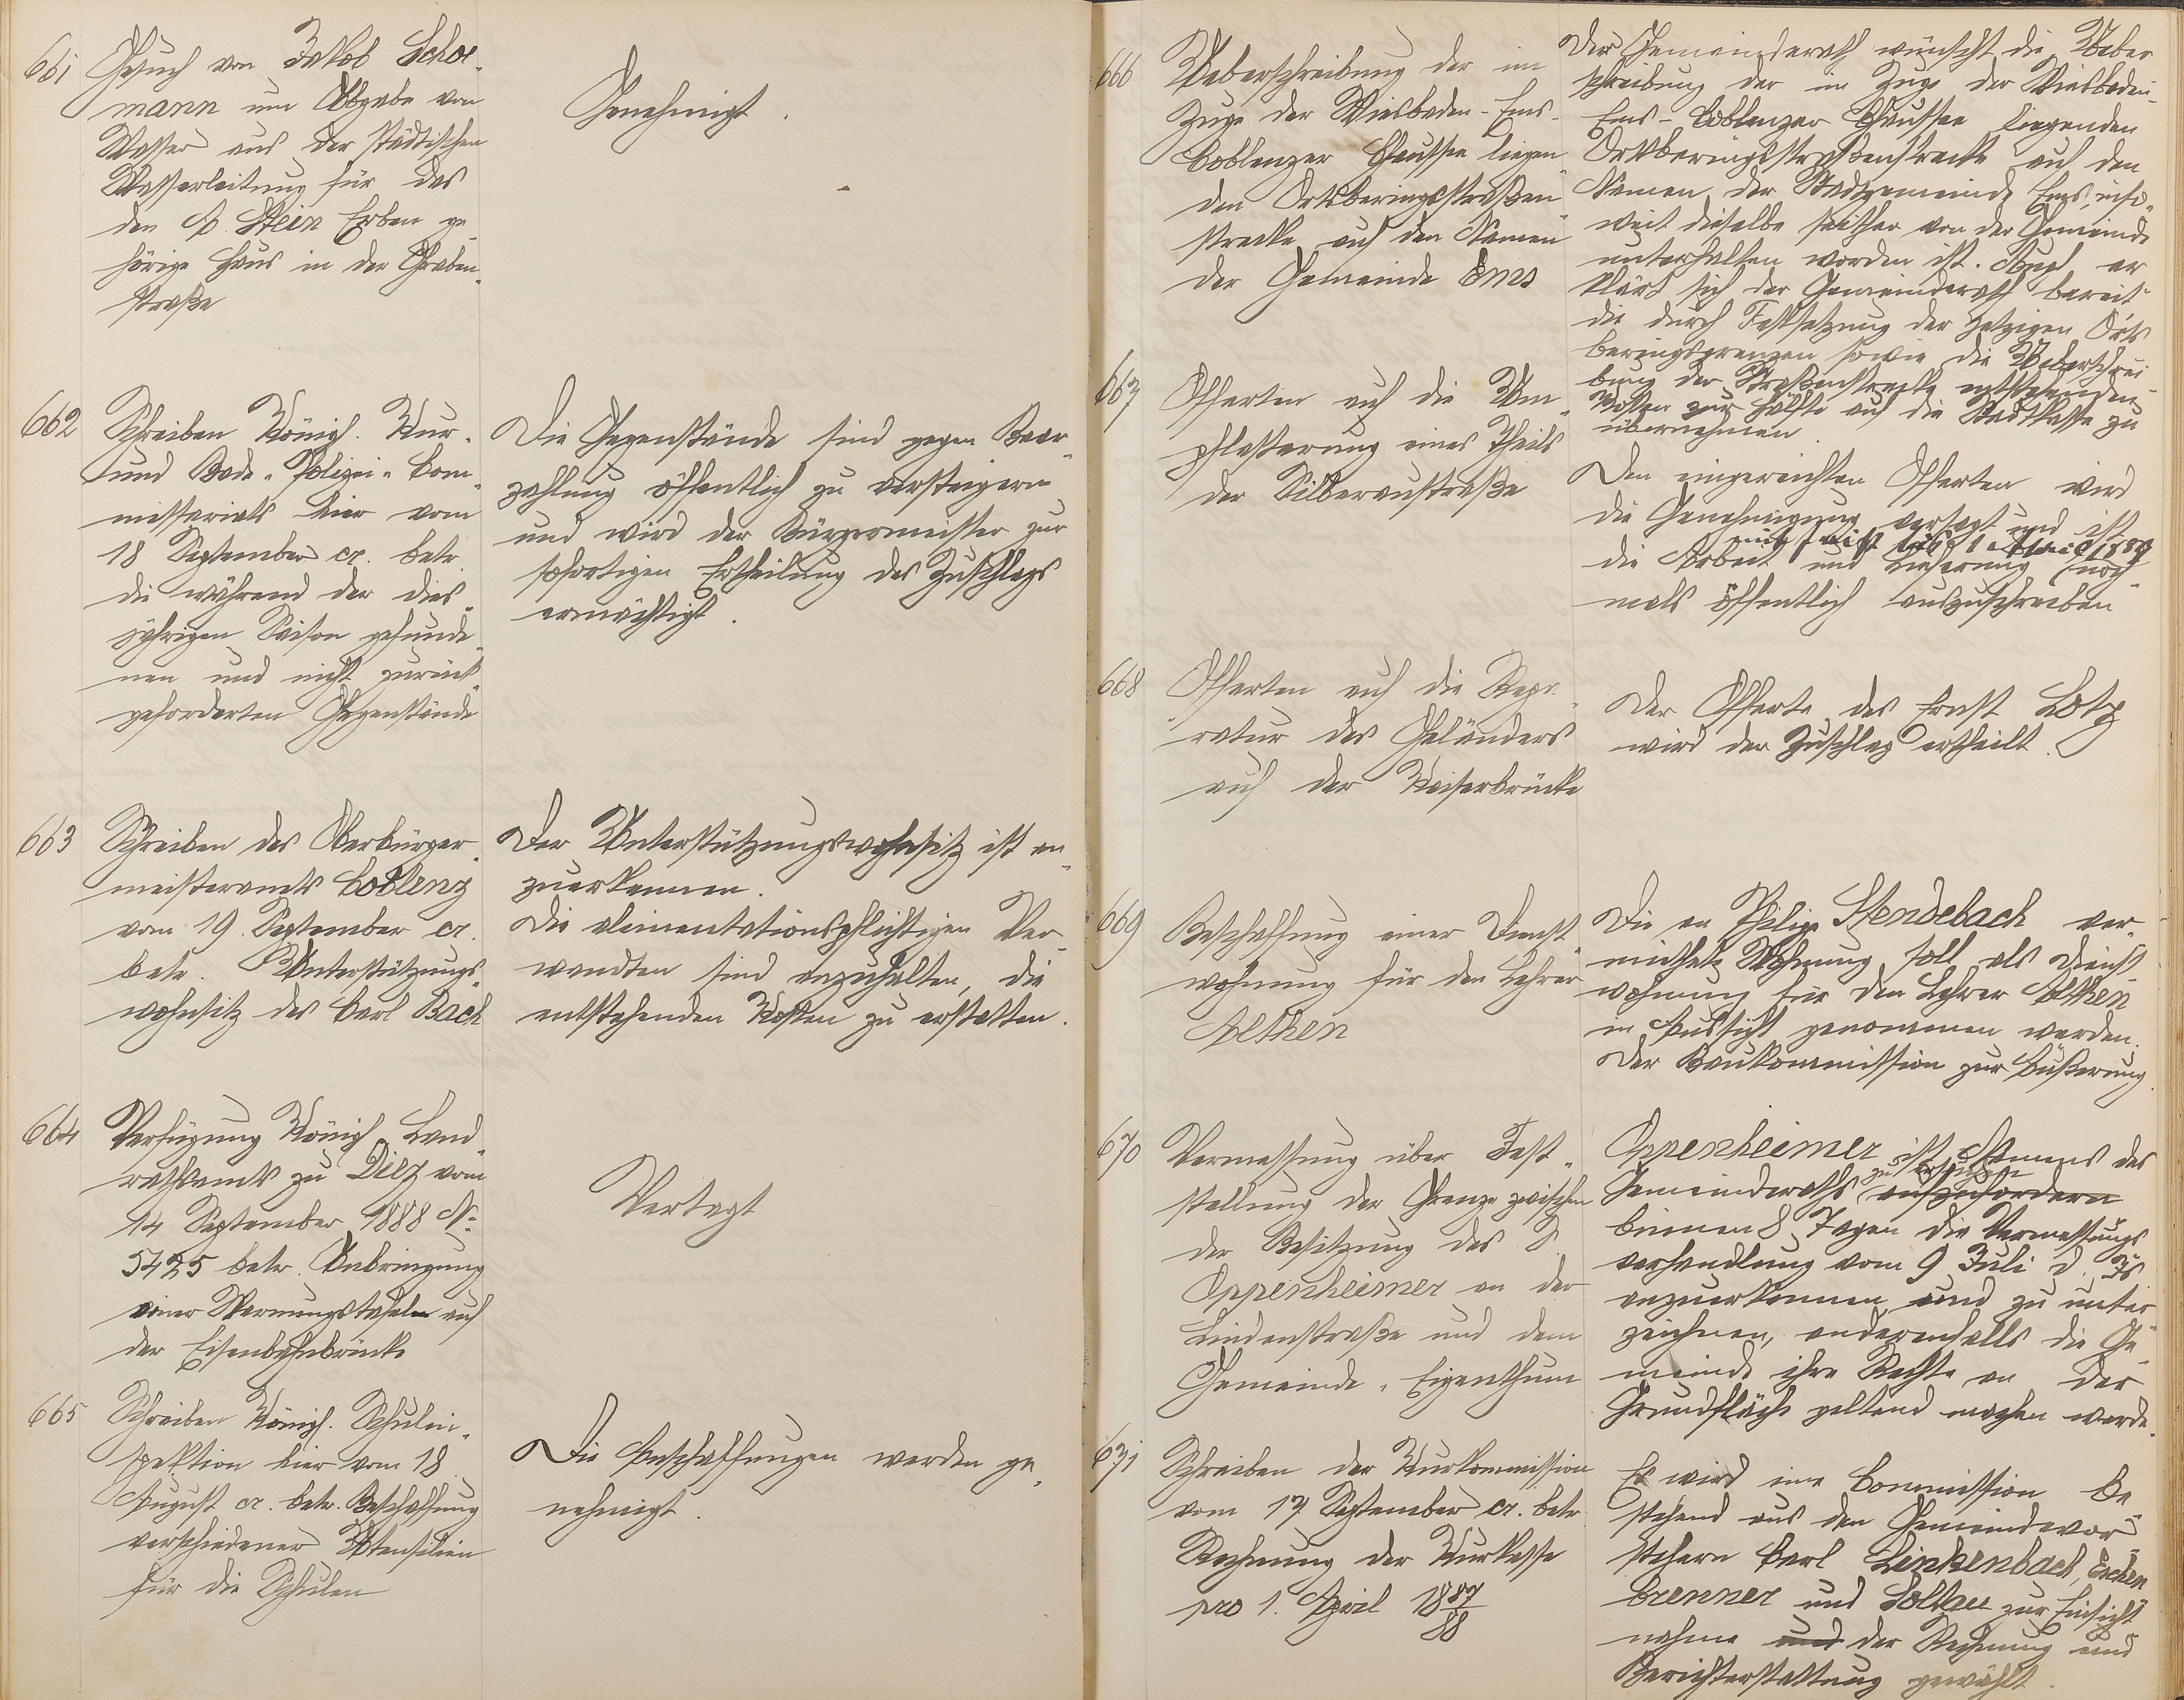 661
Gesuch von Jakob Schor-
mann um Abgabe von
Wasser aus der städtischen
Wasserleitung für das
den P. Stein Erben ge-
hörige Haus in der Graben-
straße
Genehmigt.
662
Schreiben Königl. Kur-
und Bade-Polizei-Com-
missariats hier vom
18 September cr. betr.
die während der dies-
jährigen Saison gefunde-
nen und nicht zurück-
geforderten Gegenstände
Die Gegenstände sind gegen Baar-
zahlung öffentlich zu versteigern
und wird der Bürgermeister zur
sofortigen Ertheilung des Zuschlags
ermächtigt.
663
Schreiben des Oberbürger-
meisteramts Coblenz
vom 19. September cr.
betr. Unterstützungs-
wohnsitz des Carl Bach
Der Unterstützungswohnsitz ist an-
zuerkennen.
Die alimentationspflichtigen Ver-
wandten sind anzuhalten, die
entstehenden Kosten zu erstatten.
664
Verfügung Königl. Land-
rathsamts zu Diez vom
14 September 1888 No
5425 betr. Anbringung
einer Warnungstafel auf
der Eisenbahnbrücke
Vertagt
665
Schreiben Königl. Schulin-
spektion hier vom 18
August cr. betr. Beschaffung
verschiedener Utensilien
für die Schulen
Die Anschaffungen werden ge-
nehmigt.
666
Ueberschreibung der im
Zuge der Wiesbaden-Ems-
Coblenzer Chaussee liegen-
den Ortsberingsstraßen-
strecke auf den Namen
der Gemeinde Ems
Der Gemeinderath wünscht die Ueber-
schreibung der im Zuge der Wiesbaden-
Ems-Coblenzer Chaussee liegenden
Ortsberingsstraßenstrecke auf den
Namen der Stadtgemeinde Ems, inso-
weit dieselbe seither von der Gemeinde
unterhalten worden ist. Auch er-
klärt sich der Gemeinderath bereit
die durch Festsetzung der jetzigen Orts-
beringsgrenzen sowie die Ueberschrei-
bung der Straßenstrecke entstehenden
Kosten zur Hälfte auf die Stadtkasse zu
übernehmen.
667
Offerten auf die Um-
pflasterung eines Theils
der Silberaustraße
Den eingereichten Offerten wird
die Genehmigung versagt und ist
mit Frist bis 1 April 1889
die Arbeit und Lieferung noch-
mals öffentlich auszuschreiben
668
Offerten auf die Repa-
ratur des Geländers
auf der Kaiserbrücke
Der Offerte des Ernst Lotz
wird der Zuschlag ertheilt.
669
Beschaffung einer Dienst-
wohnung für den Lehrer
Aethen
Die an Philipp Stendebach ver-
miethete Wohnung soll als Dienst-
wohnung für den Lehrer Aethen
in Aussicht genommen werden.
Der Baukommission zur Äußerung.
670
Vermessung über Fest-
stellung der Grenze zwischen
der Besitzung des S.
Oppenheimer an der
Lindenstraße und dem
Gemeinde-Eigenthum
Oppenheimer ist Namens des
zu ersuchen
Gemeinderaths aufzufordern
binnen 8 Tagen die Vermessungs-
verhandlung vom 9 Juli d. Js
anzuerkennen und zu unter-
zeichnen, anderenfalls die Ge-
meinde ihre Rechte an der
Grundfläche geltend machen werde.
671
Schreiben der Kurkommission
vom 17 September cr. betr
Rechnung der Kurkasse
pro 1. April 1887/88
Es wird eine Commission be-
stehend aus den Gemeindevor-
stehern Carl Linkenbach, Eschen-
brenner und Soltau zur Einsicht-
nahme und der Rechnung und
Berichterstattung gewählt.